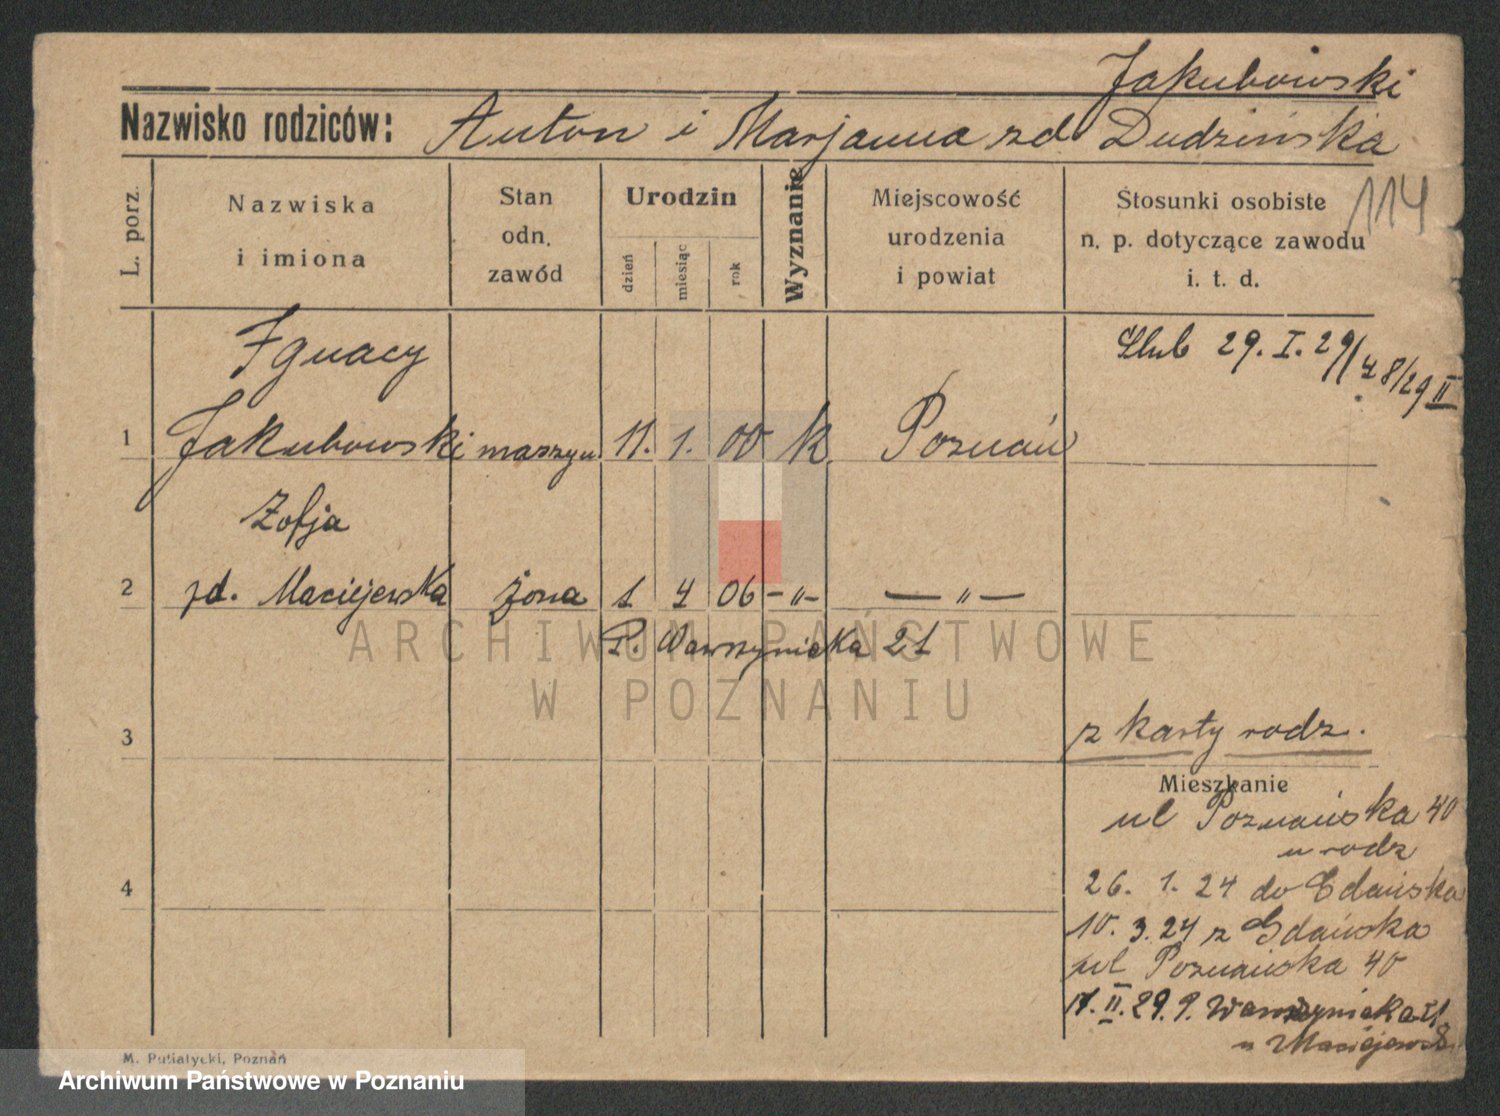 Jakubowski
Nazwisko rodziców: Anton i Marjanna zd Dudzińska
L. porz.
Nazwiska
i imiona
Stan
odn.
zawód
Urodzin
dzień
miesiąc
rok
Wyznanie
Miejscowość
urodzenia
i powiat
Stosunki osobiste
n. p. dotyczące zawodu
i. t. d.
114
Ignacy
Ślub 29. I. 29
1 Jakubowski maszyn 11. 1. 00 k. Poznań
Zofja
2 zd. Maciejewska żona 1 4 06 — „ — — „ —
P. Wawrzyniaka 21
ARCHIWUM PAŃSTWOWE
W POZNANIU
z karty rodz.
3
Mieszkanie
ul Poznańska 40
u rodz
4
26. 1. 24 do Gdańska
10. 3. 24 z Gdańska
ul Poznańska 40
II. 29. P. Wawrzyniaka 21
u Maciejewsk
M. Putiatycki, Poznań
Archiwum Państwowe w Poznaniu